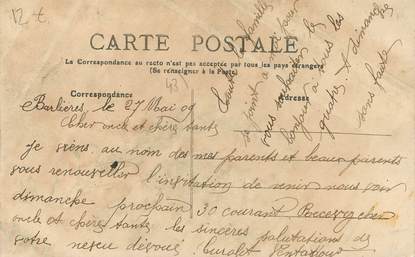 12 t.
CARTE POSTALE
La Correspondance au recto n'est pas acceptée par tous les pays étrangers
(Se renseigner à la Poste)
Correspondance
Adresse
le 27 Mai 09
Cher oncle et chère tante
Je viens au nom des mes parents et beaux parents
vous renouveller l'invitation de venir nous voir
dimanche prochain 30 courant Recevez cher
oncle et chère tante les sincères salutations de
votre neveu dévoué
Toute la famille
se joint à moi pour
vous souhaiter le
bonjour à tous les
quatre. A dimanche
sans faute